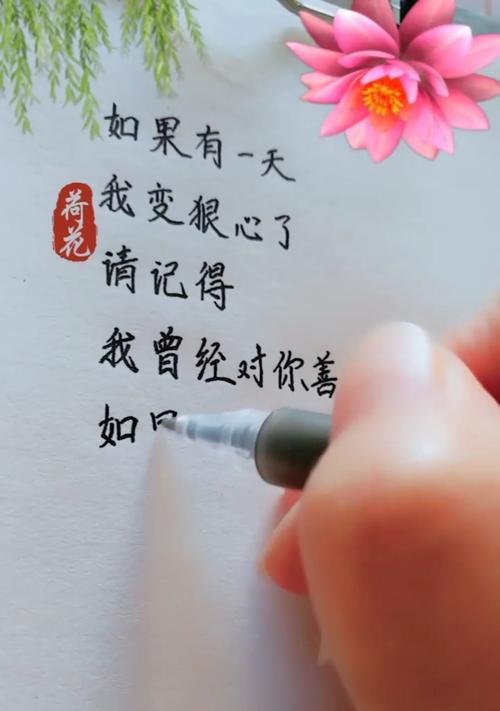 如果有一天
我变狠心了
荷花
请记得
我曾经对你善
如